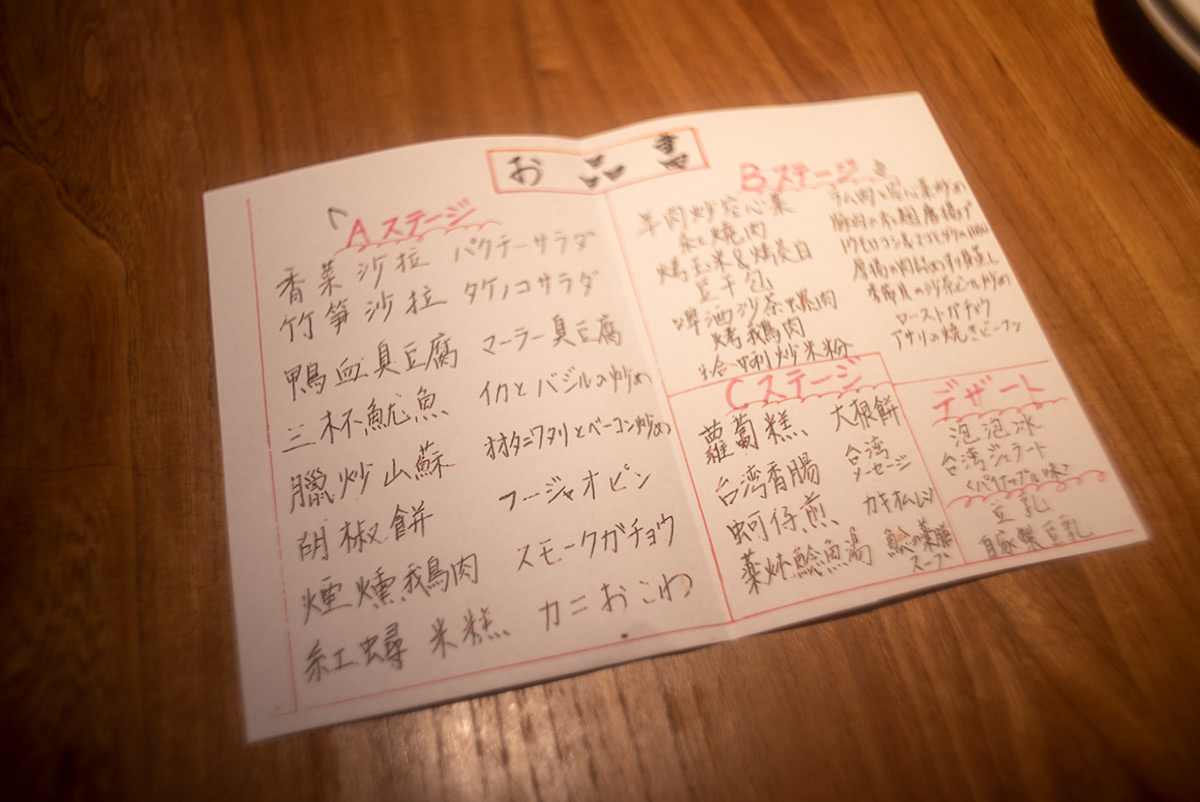 お品書
Aステージ
香菜沙拉 パクチーサラダ
竹筍沙拉 タケノコサラダ
鴨血臭豆腐 マーラー臭豆腐
三杯魷魚 イカとバジルの炒め
臘炒山蘇 オオタニワタリとベーコン炒め
胡椒餅 フージャオピン
煙燻鵝肉 スモークガチョウ
紅蟳米糕 カニおこわ
Bステージ
羊肉炒空心菜 ラム肉の空心菜炒め
紅焼肉 豚肉の紅麹唐揚げ
烤玉米&烤茭白
豆干包
啤酒沙茶螺肉
烤鵝肉 ローストガチョウ
生合唎炒米粉 アサリの焼きビーフン
Cステージ
蘿蔔糕 大根餅
台湾香腸 台湾ソーセージ
蚵仔煎 カキオムレツ
薬炖鯰魚湯 鯰の薬膳スープ
デザート
泡泡冰
台湾ジェラート
くパイナップル味>
豆乳
自家製豆乳